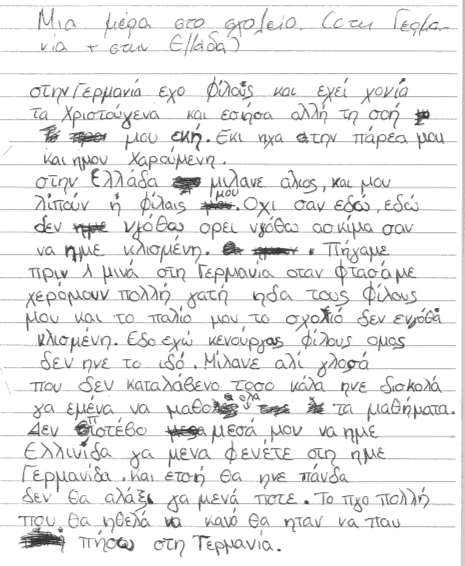 Μια μέρα στο σχολείο. (στη Γερμα-
νία + στην Ελλάδα)
στην Γερμανιά εχο φίλους και εχεί χονιά
τα Χριστούγενα και εσήσα αλλή τη σοή
μου εκή. Εκι ηχα την πάρεα μου
και ημου χαρούμενη.
στην Ελλάδα μιλανε αλιος, και μου
λιπούν ή φίλαις μου. Οχι σαν εδώ, εδώ
δεν νγόθω ορει νγόθω ασκιμα σαν
να ημε κλισμένη. Πήγαμε
πριν 1 μινά στη Γερμανια οταν φτασάμε
χερόμουν πολλή γατή ηδα τους φίλους
μου και το παλιό μου το σχολιό δεν ενγοθά
κλισμένη. Εδο εχώ κενούργας φίλους ομος
δεν ηνε το ιδό. Μίλανε αλί γλοσά
που δεν καταλάβενο τοσο κάλα ηνε δισκολά
γα εμένα να μαθο ολα τα μαθήματα.
Δεν πιστέβο μεσά μου να ημε
Ελλινίδα γα μενα φενέτε οτη ημε
Γερμανιδα. και ετσή θα ηνε πάνδα
δεν θα αλάξι γα μενά ποτε. Το πχο πολλή
που θα ηθελά να κανό θα ηταν να παυ
πήσω στη Γερμανία.